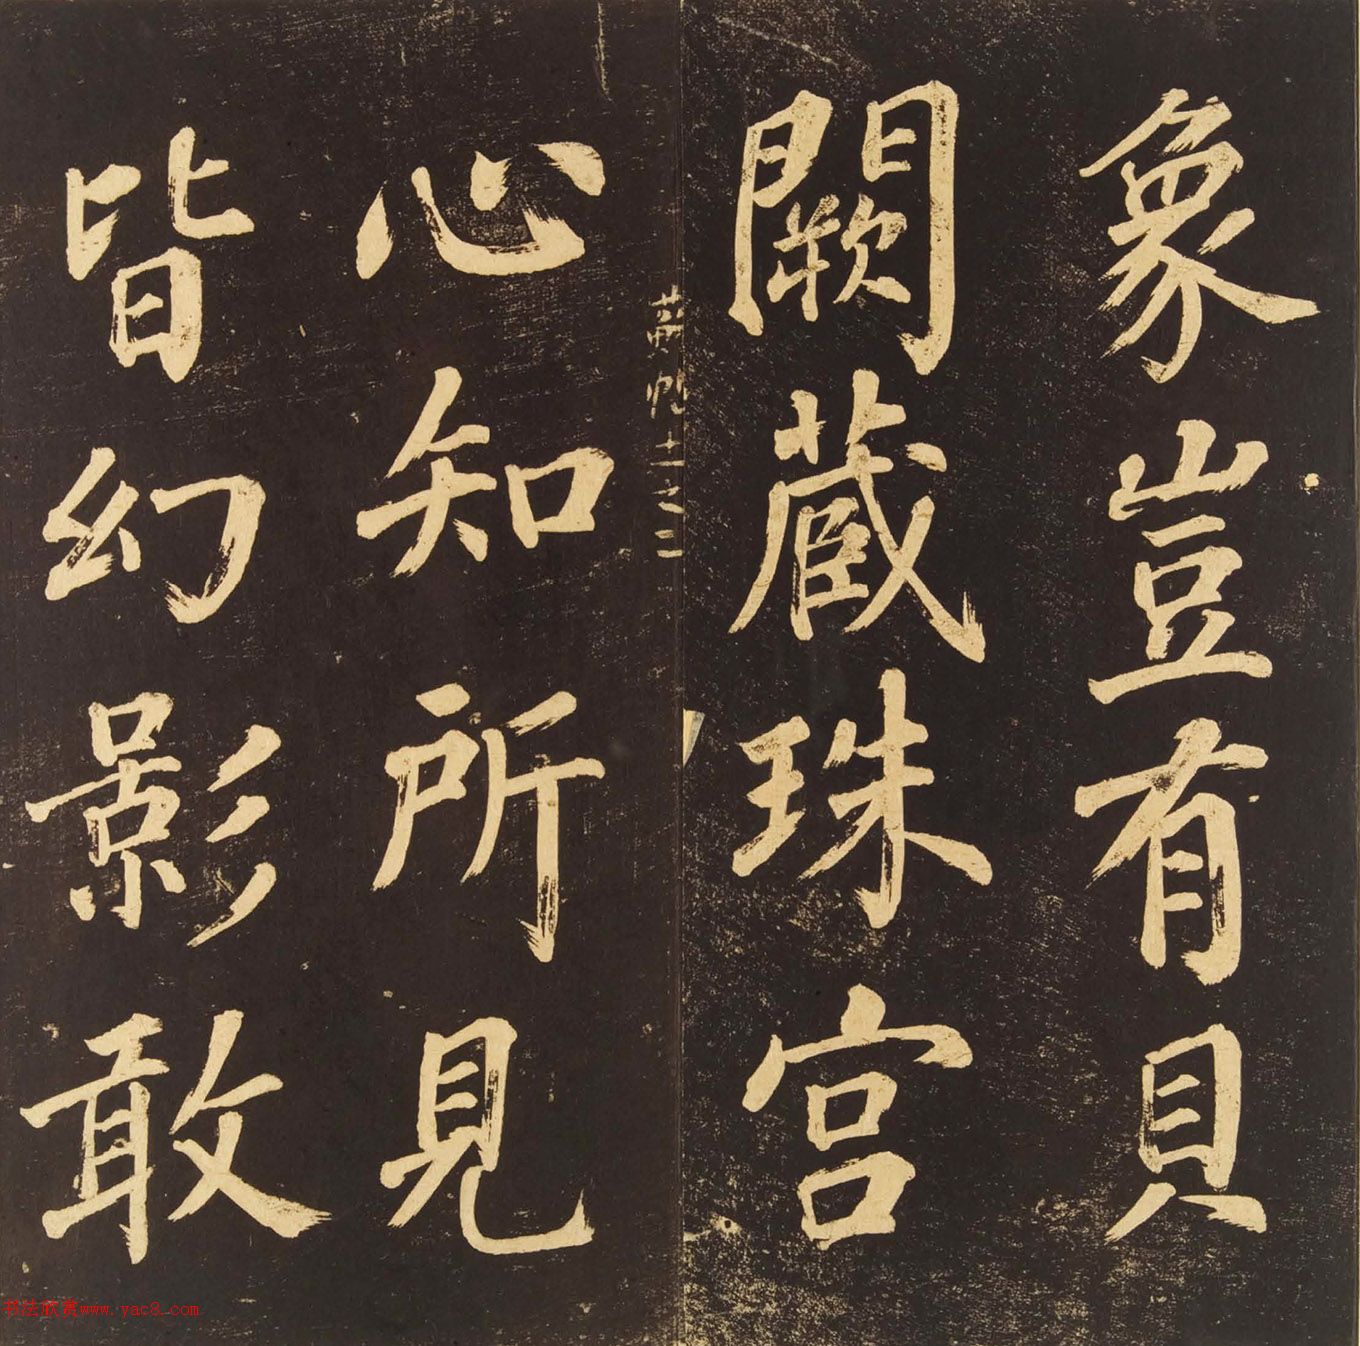 象豈有貝
闕藏珠宮
心知所見
皆幻影敢
书法欣赏www.yac8.com